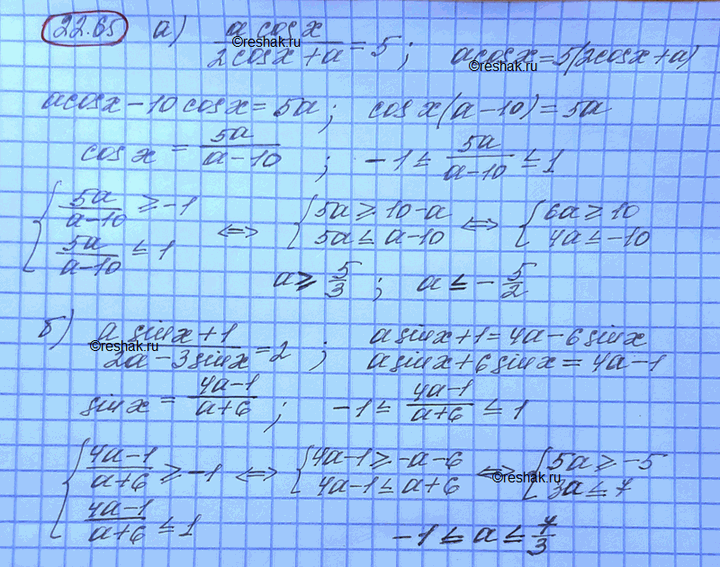 22.65 а) a cos x / (2cos x + a) = 5; acosx = 5(2cosx + a)
©reshak.ru
©reshak.ru
acosx − 10cosx = 5a; cosx(a − 10) = 5a
cosx = 5a / (a − 10); −1 ≤ 5a / (a − 10) ≤ 1
{ 5a / (a − 10) ≥ −1 ; 5a / (a − 10) ≤ 1 ⇔ { 5a ≥ 10 − a ; 5a ≤ a − 10 ⇔ { 6a ≥ 10 ; 4a ≤ −10
a ≥ 5/3; a ≤ − 5/2
б) (a sinx + 1) / (2a − 3sinx) = 2; asinx + 1 = 4a − 6sinx
©reshak.ru
asinx + 6sinx = 4a − 1
sinx = (4a − 1) / (a + 6); −1 ≤ (4a − 1) / (a + 6) ≤ 1
{ (4a − 1) / (a + 6) ≥ −1 ; (4a − 1) / (a + 6) ≤ 1 ⇔ { 4a − 1 ≥ −a − 6 ; 4a − 1 ≤ a + 6 ⇔ { 5a ≥ −5 ; 3a ≤ 7
©reshak.ru
−1 ≤ a ≤ 7/3